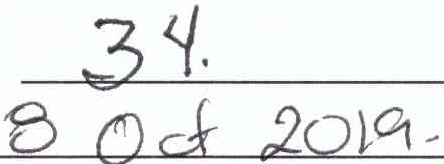 34.
8 Oct 2019.